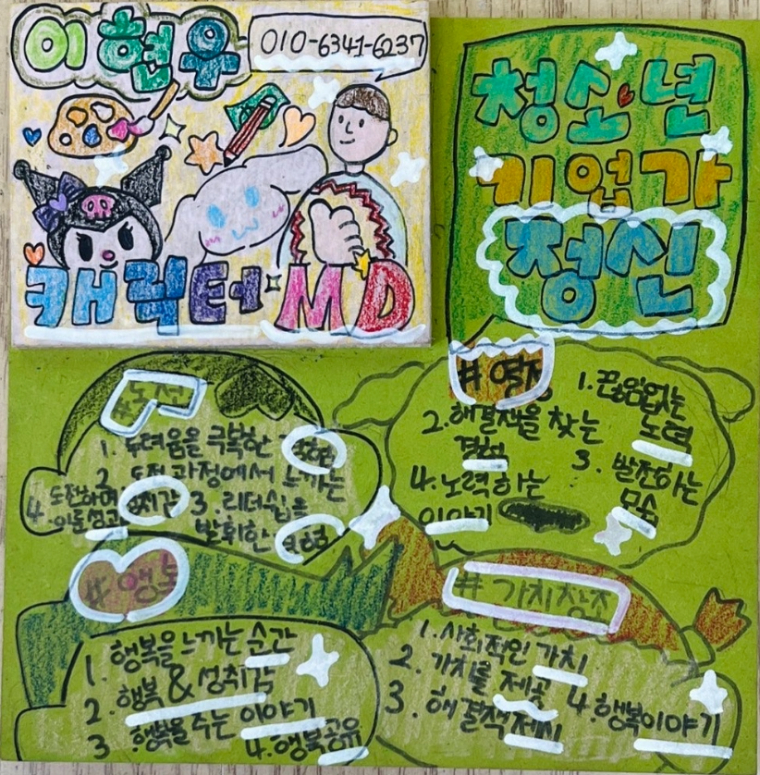 이현우
010-6341-6237
캐릭터 MD
청소년
기업가
정신
#도전
1. 두려움을 극복한
2. 도전 과정에서 느끼는
쾌감 3. 리더십을
발휘한 경험
4. 도전하며
이룬 성과
# 열정
1. 끊임없는
노력
2. 해결책을 찾는
경험
3. 발전하는
모습
4. 노력하는
이야기
# 행복
1. 행복을 느끼는 순간
2. 행복 & 성취감
3 행복을 주는 이야기
4. 행복공유
# 가치창조
1. 사회적인 가치
2. 가치를 제공
3. 해결책 제시
4. 행복이야기